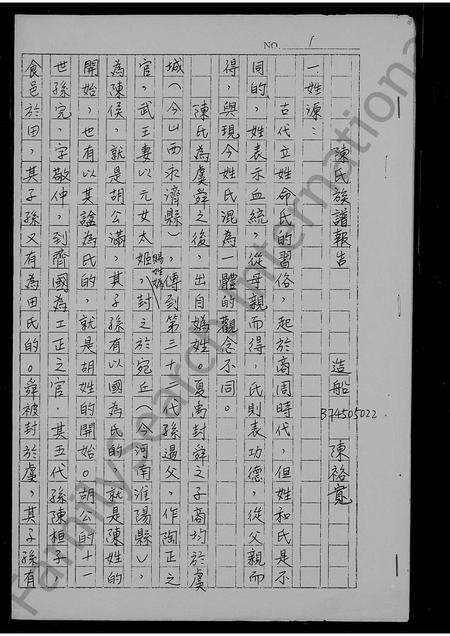 NO. 1
陳氏族譜報告 造船 B74505022 陳裕寬
一姓源：
古代立姓命氏的習俗，起於商周時代，但姓和氏是不
同的，姓表示血統，從母親而得，氏則表功德，從父親而
得，與現今姓氏混為一體的觀念不同。
陳氏為虞舜之後，出自媯姓。夏禹封舜之子商均於虞
城（今山西永濟縣），傳到第三十二代孫遏父，作陶正之
官，武王妻以元女太姬，賜姓媯，封之於宛丘（今河南淮陽縣），
為陳侯，就是胡公滿，其子孫有以國為氏的，就是陳姓的
開始，也有以其諡為氏的，就是胡姓的開始。胡公的十一
世孫完，字敬仲，到齊國為工正之官，其五代孫陳桓子
食邑於田，其子孫又有為田氏的。舜被封於虞，其子孫有
FamilySearch International